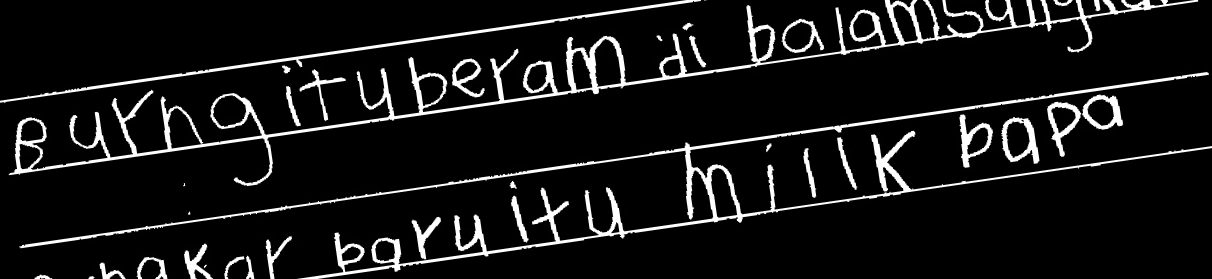 Burng itu beram di balamsangkar
baru itu milik bapa